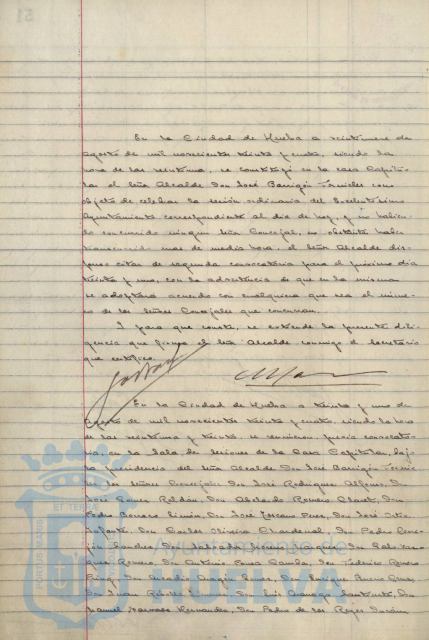 En la Ciudad de Huelva a veintinueve de
agosto de mil novecientos treinta y cuatro, siendo la
hora de las veintiuna, se constituyó en la casa Capitu-
lar el Señor Alcalde Don José Barrigón Fornieles con
objeto de celebrar la sesión ordinaria del Excelentísimo
Ayuntamiento correspondiente al día de hoy, y no habien-
do concurrido ningún Señor Concejal, no obstante haber
transcurrido mas de media hora, el Señor Alcalde dis-
puso citar de segunda convocatoria para el próximo día
treinta y uno, con la advertencia de que en la misma
se adoptará acuerdo con cualquiera que sea el núme-
ro de los Señores Concejales que concurran.
Y para que conste, se extiende la presente dili-
gencia que firma el Señor Alcalde conmigo el Secretario
que certifico.
En la Ciudad de Huelva a treinta y uno de
Agosto de mil novecientos treinta y cuatro, siendo la hora
de las veintiuna y treinta, se reunieron, previa convocato-
ria, en la Sala de sesiones de la Casa Capitular, bajo
la presidencia del Señor Alcalde Don José Barrigón Fornie-
les los Señores Concejales Don José Rodríguez Alfonso, Don
José Gómez Roldán, Don Abelardo Romero Claret, Don
Pedro Borrero Limón, Don José Ponce, Don José Ortiz
Infante, Don Carlos Oliveira Chardenal, Don Pedro
Sánchez, Don Salvador Moreno Márquez, Don
Romero, Don Antonio Pousa Camba, Don Federico Romero
Don Aragón Gómez, Don Enrique Bueno Cruz,
Don Juan Don Luis
Manuel Narváez Hernández, Don Pedro de los Reyes
Ayuntamiento de
HUELVA
PORTUS MARIS
ET TERRAE
51